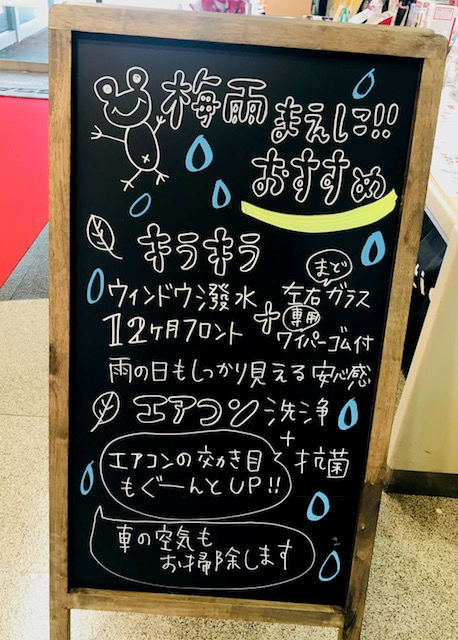 梅雨まえに!!
おすすめ
キラキラ
ウィンドウ潑水
12ヶ月フロント
+
まど
左右ガラス
専用
ワイパーゴム付
雨の日もしっかり見える安心感
エアコン洗浄
+
抗菌
エアコンの交かき目
もぐーんとUP!!
車の空気も
お掃除します